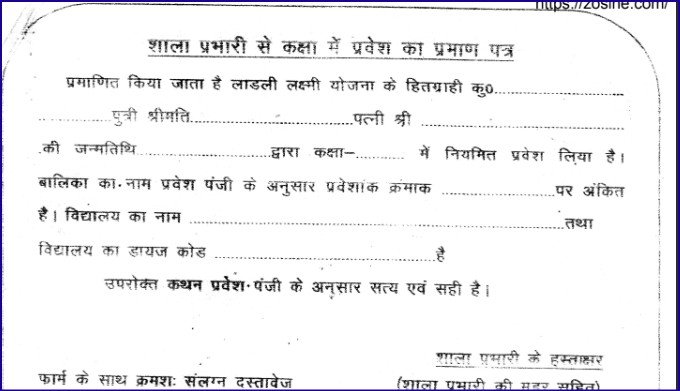 https://zosine.com/
शाला प्रभारी से कक्षा में प्रवेश का प्रमाण पत्र
प्रमाणित किया जाता है लाडली लक्ष्मी योजना के हितग्राही कु0..............................
..................पुत्री श्रीमति....................................पत्नी श्री ......................................
की जन्मतिथि............................द्वारा कक्षा-........... में नियमित प्रवेश लिया है।
बालिका का नाम प्रवेश पंजी के अनुसार प्रवेशांक क्रमांक .........................पर अंकित
है। विद्यालय का नाम ................................................................................तथा
विद्यालय का डायज कोड ................................................है
उपरोक्त कथन प्रवेश पंजी के अनुसार सत्य एवं सही है।
शाला प्रभारी के हस्ताक्षर
फार्म के साथ क्रमशः संलग्न दस्तावेज (शाला प्रभारी की मुहर सहित)